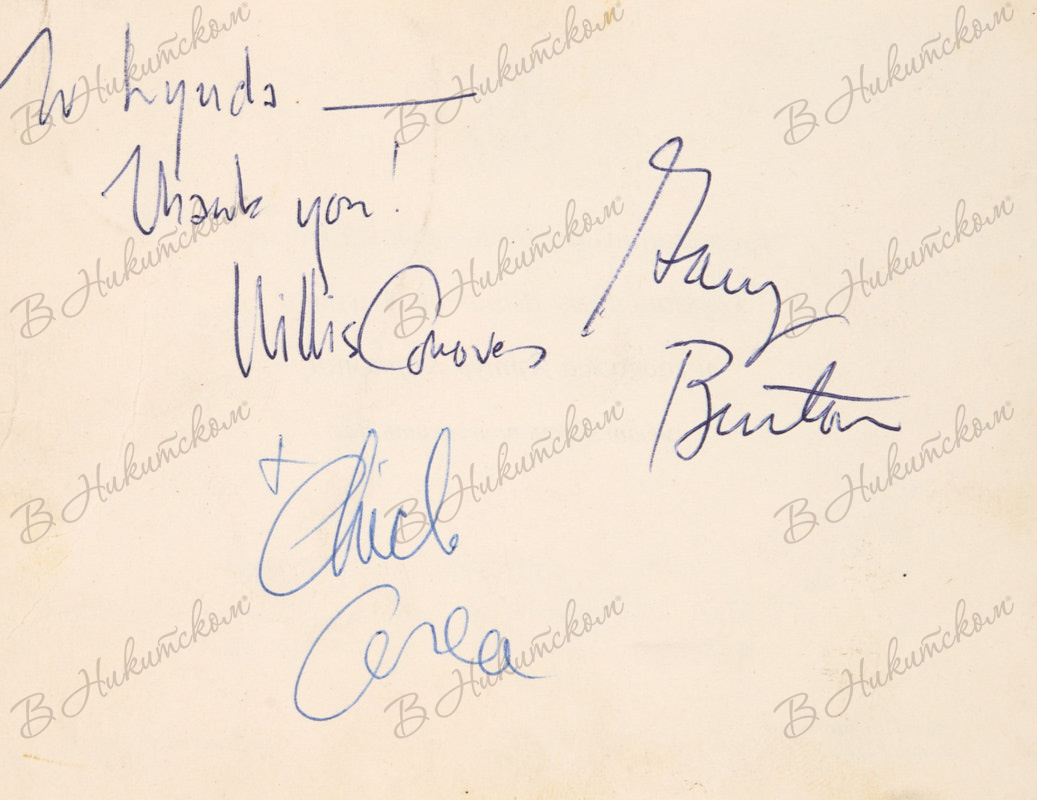 To Lynda —
Thank you!
Willis Conover
Gary
Burton
+ Chick
Corea
В Никитском®
В Никитском®
В Никитском®
В Никитском®
В Никитском®
В Никитском®
В Никитском®
В Никитском®
В Никитском®
В Никитском®
В Никитском®
В Никитском®